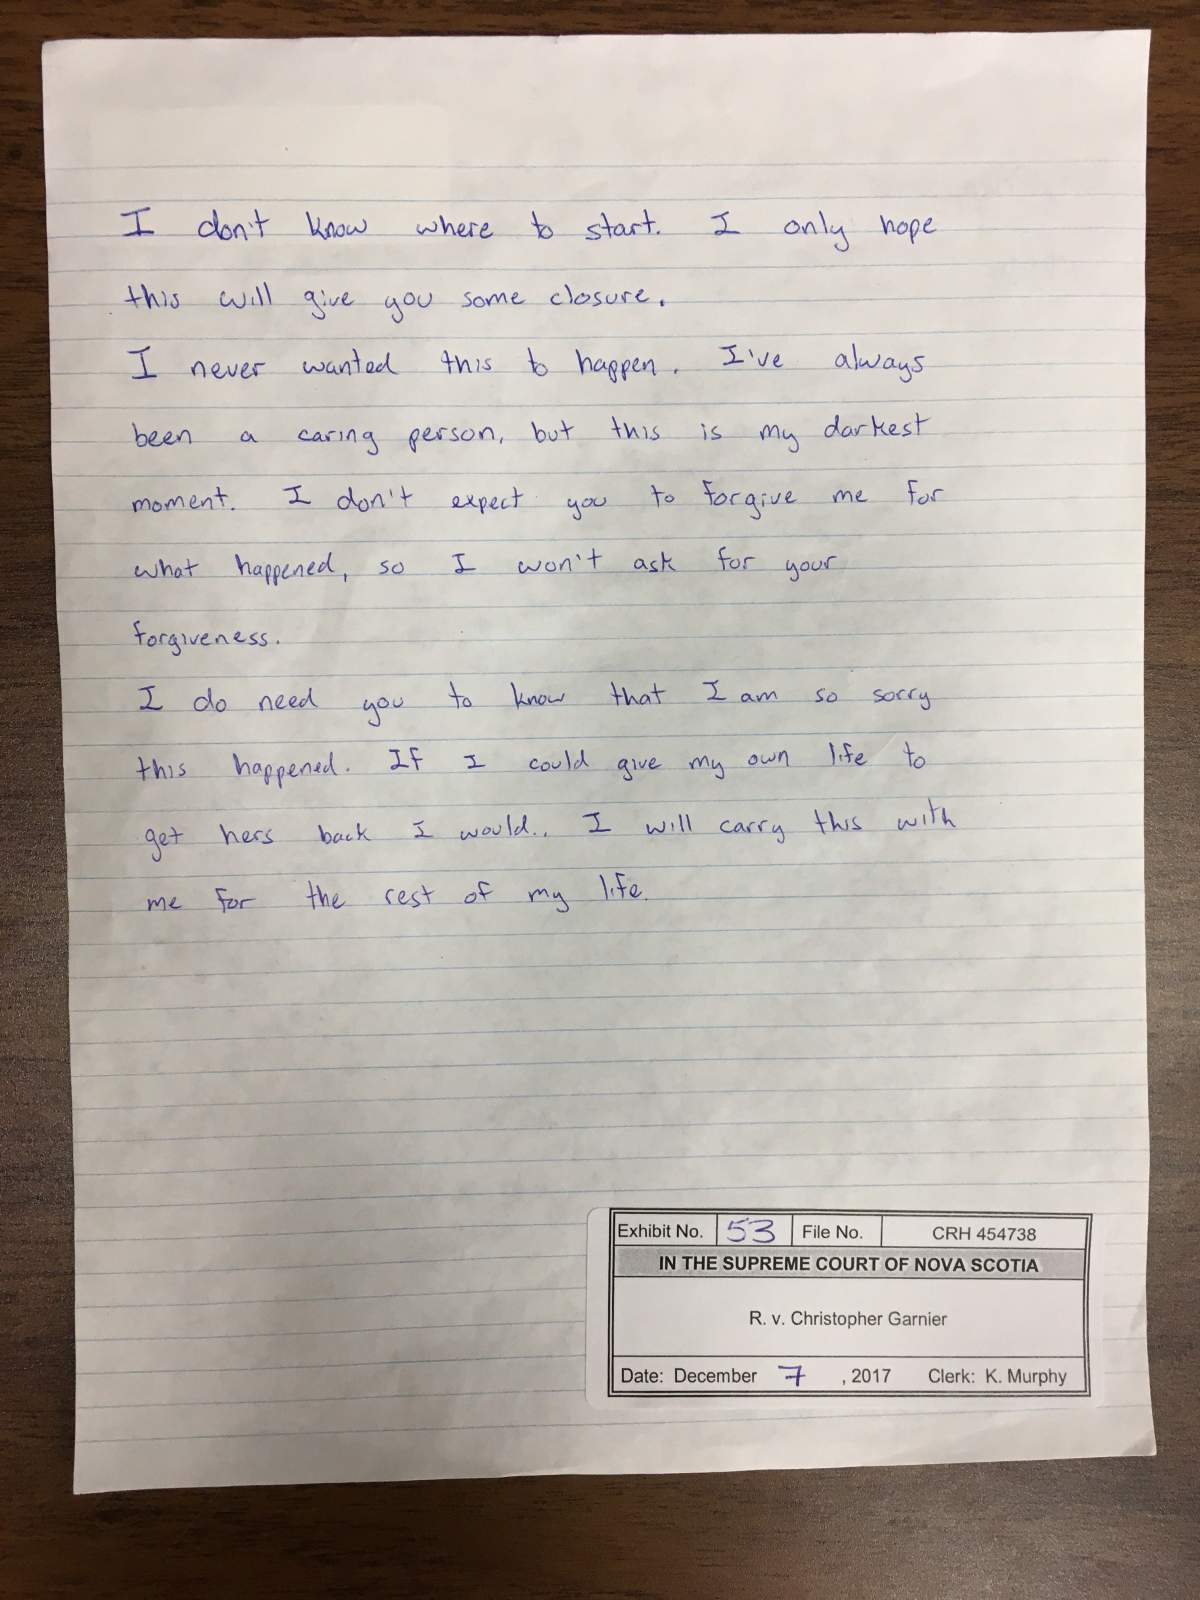 I don't know where to start. I only hope
this will give you some closure.
I never wanted this to happen. I've always
been a caring person, but this is my darkest
moment. I don't expect you to forgive me for
what happened, so I won't ask for your
forgiveness.
I do need you to know that I am so sorry
this happened. If I could give my own life to
get hers back I would.. I will carry this with
me for the rest of my life.
Exhibit No. 53 File No. CRH 454738
IN THE SUPREME COURT OF NOVA SCOTIA
R. v. Christopher Garnier
Date: December 7, 2017 Clerk: K. Murphy